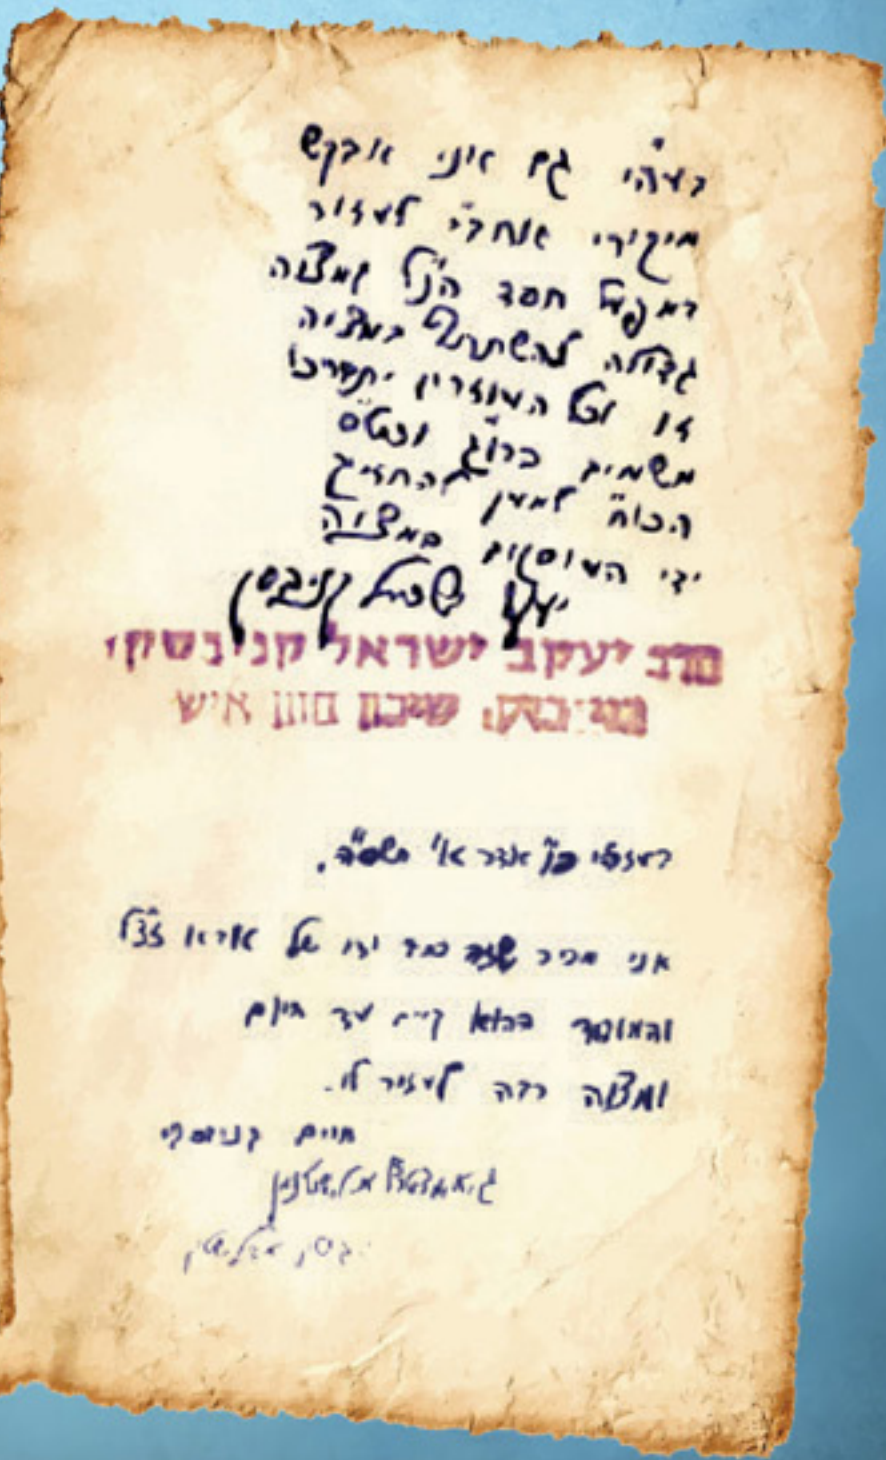 בעה"י גם אני אבקש
מיקירי אחב"י לעזור
במפעל חסד הנ"ל ומצוה
גדולה להשתתף במצוה
זו וכל העוזרים יתברכו
משמים ברו"ג וכט"ס
הכו"ח למען להחזיק
ידי העוסקים במצוה
יעקב ישראל קניבסקי
הרב יעקב ישראל קניבסקי
בני-ברק, שיכון חזון איש
אדר א' תשס"ה.
אני מכיר שזה כתב ידו של אאמו"ר זצ"ל
והמוסד ההוא קיים עד היום
ומצוה רבה לעזור לו.
חיים קניבסקי